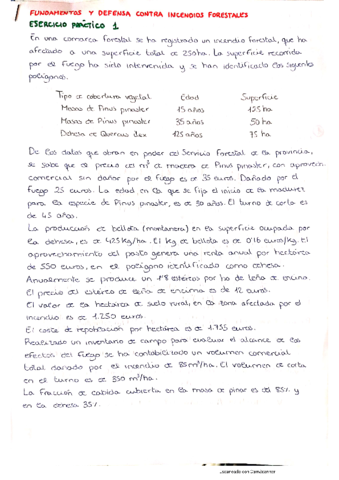 FUNDAMENTOS Y DEFENSA CONTRA INCENDIOS FORESTALES
EJERCICIO PRÁCTICO 1
En una comarca forestal se ha registrado un incendio forestal, que ha
afectado a una superficie total de 250ha. La superficie recorrida
por el fuego ha sido intervenida y se han identificado los siguiente
polígonos.
Tipo de cobertura vegetal Edad Superficie
Masas de Pinus pinaster 15 años 125 ha
Masas de Pinus pinaster 35 años 50 ha
Dehesa de Quercus ilex 125 años 75 ha
De los datos que obran en poder del Servicio Forestal de la provincia,
se sabe que el precio del m³ de madera de Pinus pinaster, con aprovech.
comercial sin dañar por el fuego es de 35 euros. Dañada por el
fuego 25 euros. La edad en la que se fija el inicio de la madurez
para la especie de Pinus pinaster, es de 30 años. El turno de corta es
de 45 años.
La producción de bellota (montanera) en la superficie ocupada por
la dehesa, es de 425kg/ha. El kg de bellota es de 0'16 euros/kg. El
aprovechamiento del pasto genera una renta anual por hectárea
de 550 euros, en el polígono identificado como dehesa.
Anualmente se produce un 1'8 estéreos por ha de leña de encina
El precio del estéreo de leña de encina es de 12 euros.
El valor de la hectárea de suelo rural, en la zona afectada por el
incendio es de 1.250 euros.
El coste de repoblación por hectárea es de 1.735 euros.
Realizado un inventario de campo para evaluar el alcance de los
efectos del fuego se ha contabilizado un volumen comercial
total dañado por el incendio de 85m³/ha. El volumen de corta
en el turno es de 350 m³/ha.
La fracción de cabida cubierta en la masa de pinar es del 85% y
en la dehesa 35%.